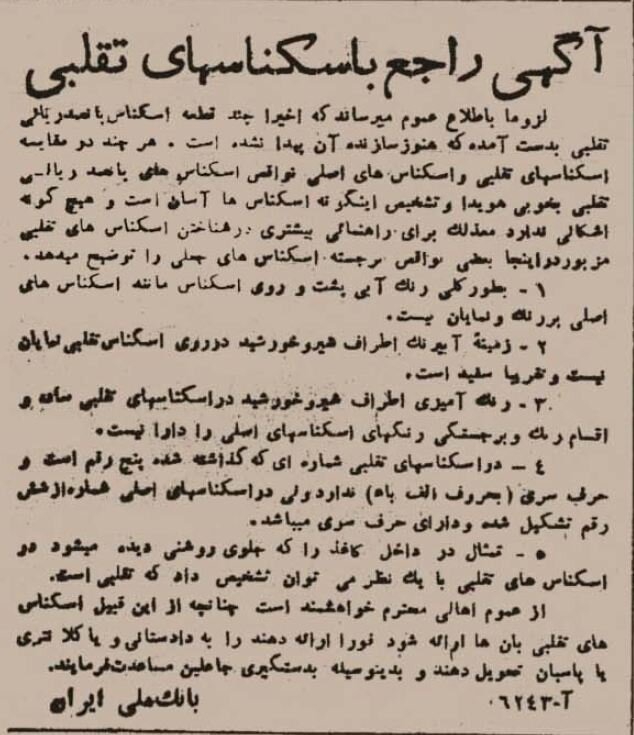 آگهی راجع باسکناسهای تقلبی
لزوما باطلاع عموم میرساند که اخیرا چند قطعه اسکناس پانصدریالی
تقلبی بدست آمده که هنوز سازنده آن پیدا نشده است . هر چند دو مقایسه
اسکناسهای تقلبی و اسکناس های اصلی نواقص اسکناس های پانصد ریالی
تقلبی بخوبی هویدا و تشخیص اینگونه اسکناس ها آسان است و هیچ گونه
اشکالی ندارد معذلک برای راهنمائی بیشتری درشناختن اسکناس های تقلبی
مزبوردراینجا بعضی نواقص برجسته اسکناس های جعلی را توضیح میدهد.
۱ - بطورکلی رنك آبی پشت و روی اسکناس مانند اسکناس های
اصلی پررنك و نمایان نیست.
۲ - زمینهٔ آبیرنك اطراف شیروخورشید درروی اسکناس تقلبی نمایان
نیست و تقریبا سفید است.
۳ - رنك آمیزی اطراف شیروخورشید دراسکناسهای تقلبی ساده و
اقسام رنك و برجستگی رنگهای اسکناسهای اصلی را دارا نیست.
٤ - دراسکناسهای تقلبی شماره ای که گذاشته شده پنج رقم است و
حرف سری (بحروف الف باء) نداردولی دراسکناسهای اصلی شماره‌ازشش
رقم تشکیل شده ودارای حرف سری میباشد.
۵ - تمثال در داخل کاغذ را که جلوی روشنی دیده میشود در
اسکناس های تقلبی با یك نظر می توان تشخیص داد که تقلبی است.
از عموم اهالی محترم خواهشمند است چنانچه از این قبیل اسکناس
های تقلبی بان ها ارائه شود فورا ارائه دهند را به دادستانی و یا کلانتری
یا پاسبان تحویل دهند و بدینوسیله بدستگیری جاعلین مساعدت فرمایند.
آ-٦٢٤٣٠ بانك ملی ایران